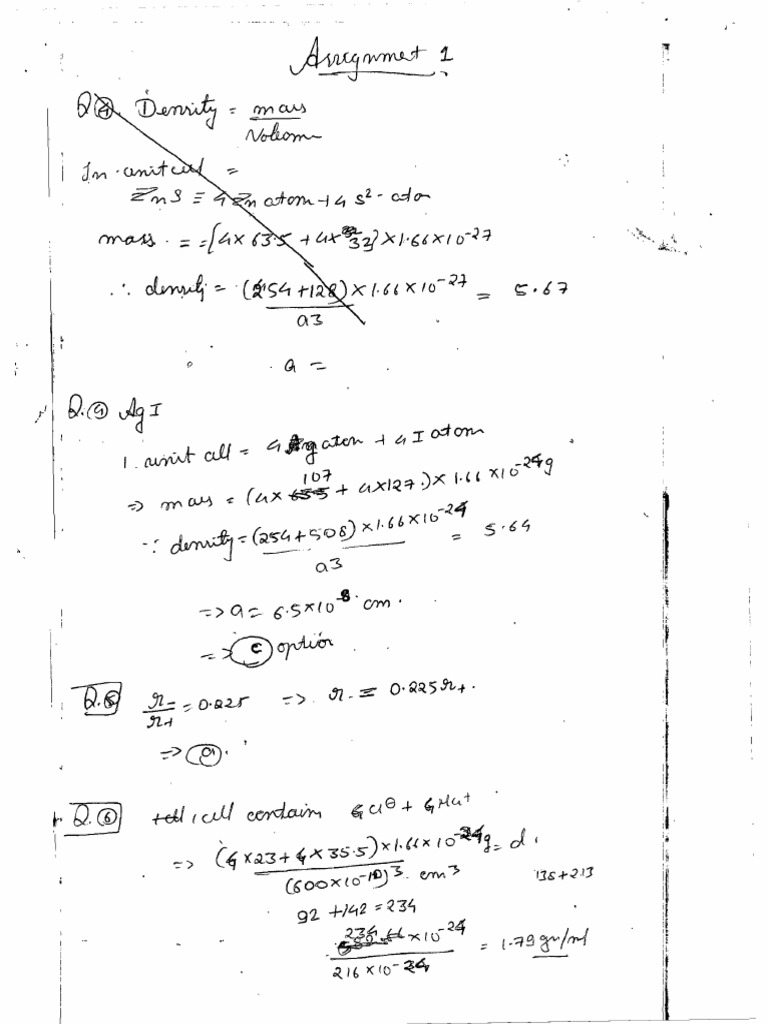 Assignmet 1
Q④. Density = mass
Volom
In unit cell =
ZnS ≡ 4 Zn atom + 4 S²⁻ atom
mass = = [4×63.5 + 4×32] × 1.66×10⁻²⁷
∴ density = (254+128) × 1.66×10⁻²⁷ = 5.67
a3
a =
Q.④ AgI
1. unit cell = 4 Ag atom + 4 I atom
107
⇒ mass = (4× 63.5 + 4×127.) × 1.66×10⁻²⁴g
∵ density = (254+508) × 1.66×10⁻²⁴ = 5.64
a3
⇒ a = 6.5×10⁻⁸ cm.
⇒ ⓒ option
Q.⑤ r₋/r₊ = 0.225 ⇒ r₋ = 0.225 r₊.
⇒ ⓐ.
Q.⑥ 1 cell contain 4Cl⊖ + 4Na⁺
⇒ (4×23 + 4×35.5) × 1.66×10⁻²⁴g = d.
(600×10⁻¹⁰)³ cm3
138+213
92 + 142 = 234
234 ×10⁻²⁴ = 1.79 gm/ml
216×10⁻²⁴